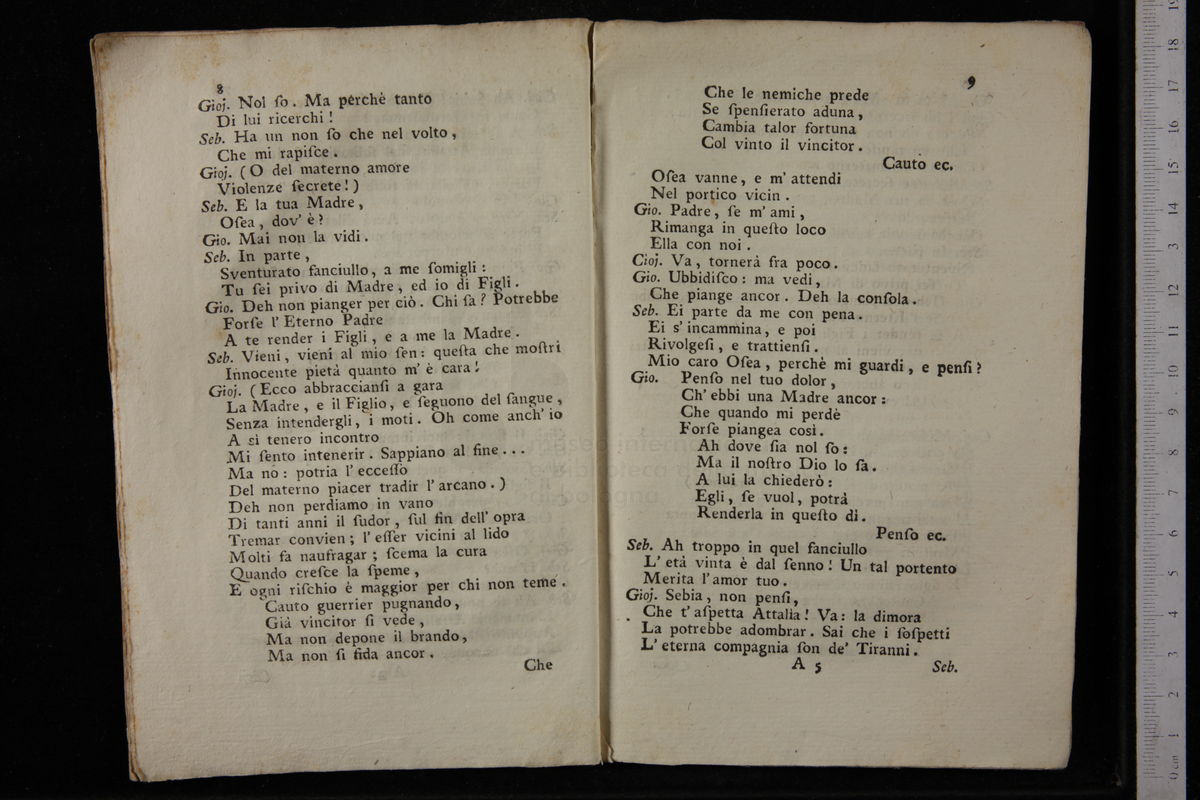 8
Gioj. Nol ſo. Ma perchè tanto
Di lui ricerchi!
Seb. Ha un non ſo che nel volto,
Che mi rapiſce.
Gioj. (O del materno amore
Violenze ſecrete!)
Seb. E la tua Madre,
Oſea, dov' è?
Gio. Mai non la vidi.
Seb. In parte,
Sventurato fanciullo, a me ſomigli:
Tu ſei privo di Madre, ed io di Figli.
Gio. Deh non pianger per ciò. Chi ſa? Potrebbe
Forſe l' Eterno Padre
A te render i Figli, e a me la Madre.
Seb. Vieni, vieni al mio ſen: queſta che moſtri
Innocente pietà quanto m' è cara!
Gioj. (Ecco abbraccianſi a gara
La Madre, e il Figlio, e ſeguono del ſangue,
Senza intendergli, i moti. Oh come anch' io
A sì tenero incontro
Mi ſento intenerir. Sappiano al fine...
Ma nò: potria l' ecceſſo
Del materno piacer tradir l' arcano.)
Deh non perdiamo in vano
Di tanti anni il ſudor, ſul fin dell' opra
Tremar convien; l' eſſer vicini al lido
Molti fa naufragar; ſcema la cura
Quando creſce la ſpeme,
E ogni riſchio è maggior per chi non teme.
Cauto guerrier pugnando,
Già vincitor ſi vede,
Ma non depone il brando,
Ma non ſi fida ancor.
Che
9
Che le nemiche prede
Se ſpenſierato aduna,
Cambia talor fortuna
Col vinto il vincitor.
Cauto ec.
Oſea vanne, e m' attendi
Nel portico vicin.
Gio. Padre, ſe m' ami,
Rimanga in queſto loco
Ella con noi.
Cioj. Va, tornerà fra poco.
Gio. Ubbidiſco: ma vedi,
Che piange ancor. Deh la conſola.
Seb. Ei parte da me con pena.
Ei s' incammina, e poi
Rivolgeſi, e trattienſi.
Mio caro Oſea, perchè mi guardi, e penſi?
Gio. Penſo nel tuo dolor,
Ch' ebbi una Madre ancor:
Che quando mi perdè
Forſe piangea così.
Ah dove ſia nol ſo:
Ma il noſtro Dio lo ſa.
A lui la chiederò:
Egli, ſe vuol, potrà
Renderla in queſto dì.
Penſo ec.
Seb. Ah troppo in quel fanciullo
L' età vinta è dal ſenno! Un tal portento
Merita l' amor tuo.
Gioj. Sebia, non penſi,
Che t' aſpetta Attalia! Va: la dimora
La potrebbe adombrar. Sai che i ſoſpetti
L' eterna compagnia ſon de' Tiranni.
A 5
Seb.